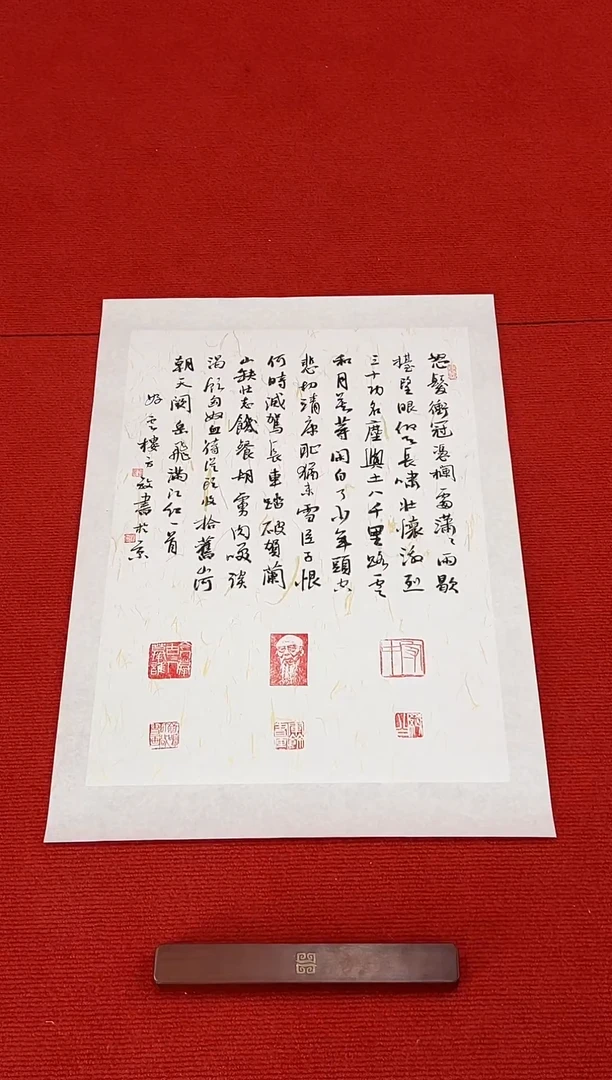 怒髮衝冠憑欄處瀟〻雨歇
擡望眼仰天長嘯壯懷激烈
三十功名塵與土八千里路雲
和月莫等閒白了少年頭空
悲切靖康耻猶未雪臣子恨
何時滅駕長車踏破賀蘭
山缺壯志饑餐胡虜肉笑談
渴飲匈奴血待從頭收拾舊山河
朝天闕岳飛滿江紅一首
樓 書於京